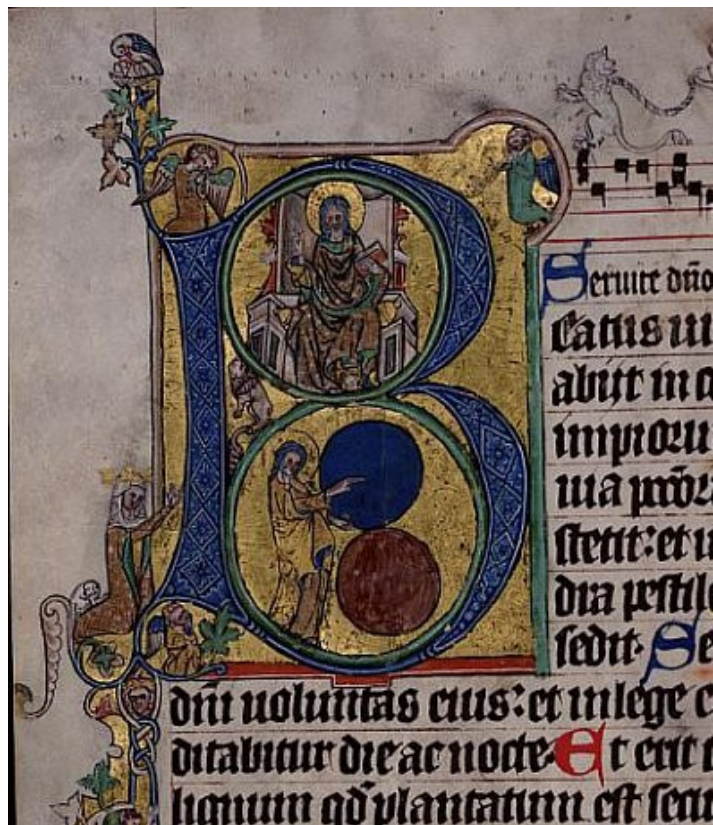 B
Seruite dño
eatus ui
abijt in c
impioru
uia peccor
stetit: et i
dra pestile
sedit. Se
dñi uoluntas eius: et in lege e
ditabitur die ac nocte. Et erit t
lignum qđ plantatum est secu